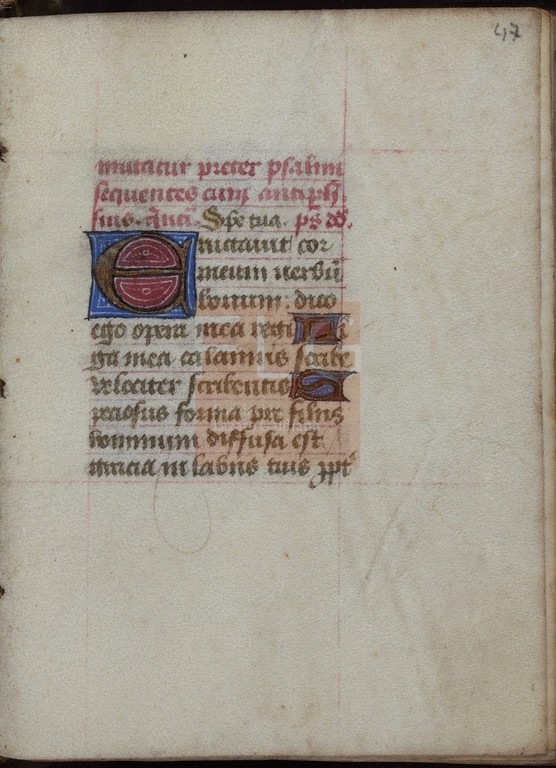 47
mutatur preter psalmi
sequentes cum antiph̄.
suis. Añ. Spe tua. ps dd̄.
Eructauit cor
meum uerbū
bonum: dico
ego opera mea regi Li
gua mea calamus scribe
velociter scribentis S
peciosus forma pre filiis
hominum diffusa est
gracia in labiis tuis ꝓpt̄